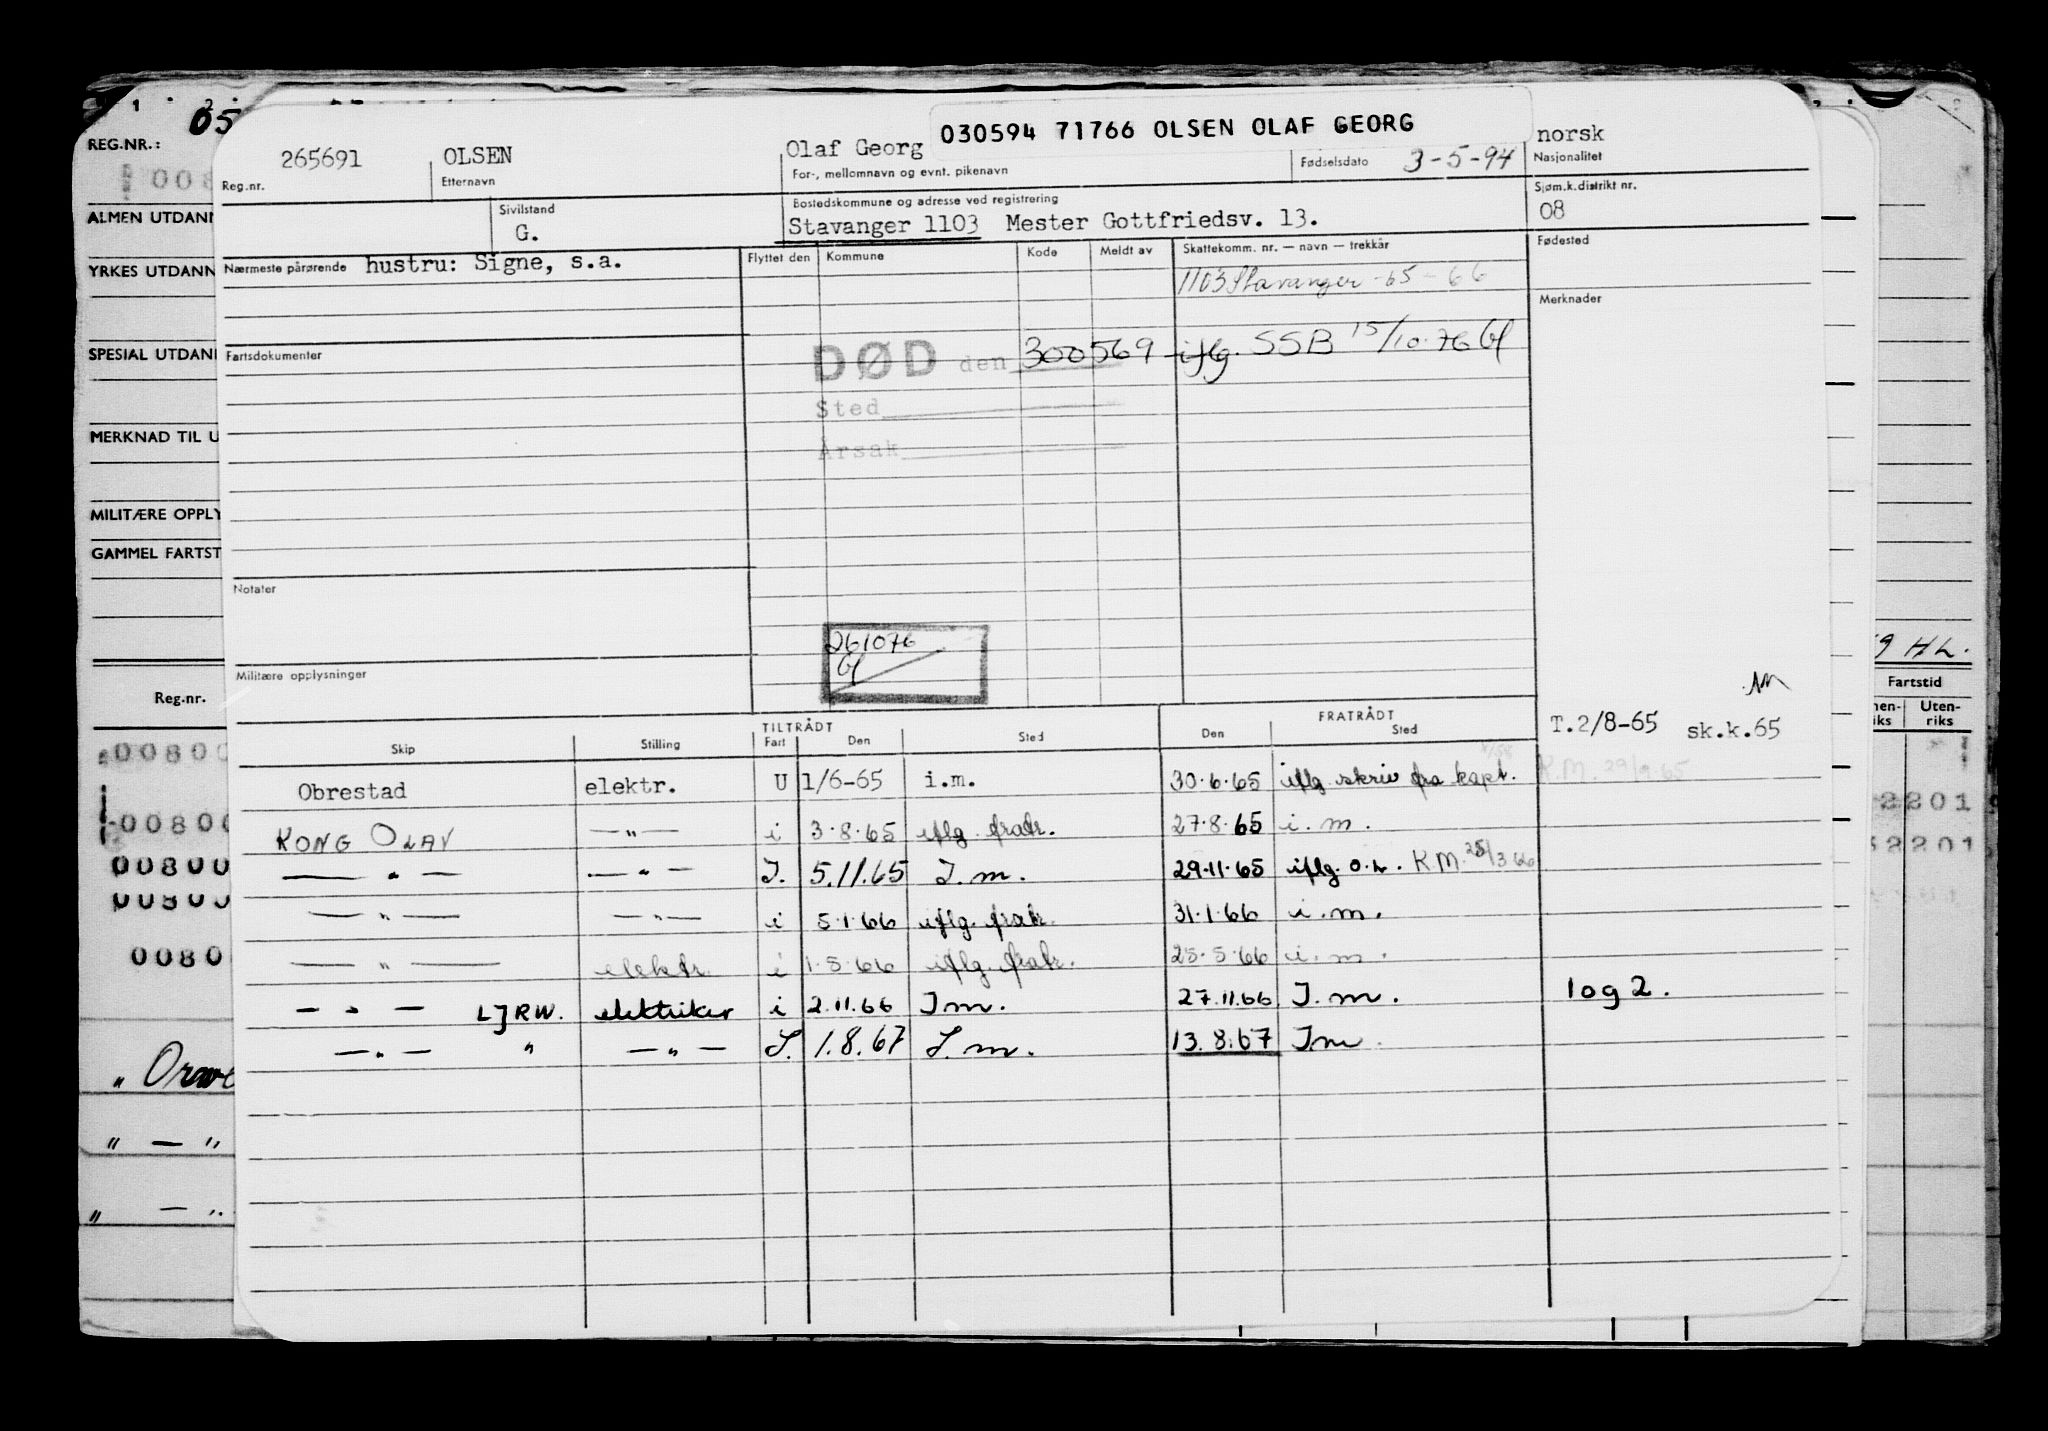 1 2
REG.NR.:
05
008
ALMEN UTDANN
YRKES UTDANN
SPESIAL UTDANN
MERKNAD TIL U
MILITÆRE OPPLY
GAMMEL FARTST
Reg.nr.
00800
00800
00800
00800
0080
" Orwe
" — "
" — "
030594 71766 OLSEN OLAF GEORG
265691 OLSEN Olaf Georg norsk
Reg.nr. Etternavn For-, mellomnavn og evnt. pikenavn Fødselsdato 3-5-94 Nasjonalitet
Sivilstand Bostedskommune og adresse ved registrering Sjøm.k.distrikt nr.
G. Stavanger 1103 Mester Gottfriedsv. 13. 08
Nærmeste pårørende hustru: Signe, s.a. Flyttet den Kommune Kode Meldt av Skattekomm. nr. — navn — trekkår Fødested
1103 Stavanger -65-66
Merknader
Fartsdokumenter DØD den 300569 iflg. SSB 15/10-76
Sted
Årsak
Notater
261076
Militære opplysninger
TILTRÅDT FRATRÅDT
Skip Stilling Fart Den Sted Den Sted T.2/8-65 sk.k.65
Obrestad elektr. U 1/6-65 i.m. 30.6.65 iflg. skriv fra kapt. K.M. 29/9.65
KONG OLAV —"— i 3.8.65 iflg. fratr. 27.8.65 i.m.
— " — — " — I. 5.11.65 I.m. 29.11.65 iflg. o.k. K.M. 25/3 66
— " — — " — i 5.1.66 iflg. fratr. 31.1.66 i.m.
— " — elektr. i 1.5.66 iflg. fratr. 25.5.66 i.m.
— " — LJRW. elektriker i 2.11.66 Im. 27.11.66 I.m. log 2.
— " — " — " — I. 1.8.67 I.m. 13.8.67 Im.
9 HL.
Fartstid
nen-
iks
Uten-
riks
2201
2201